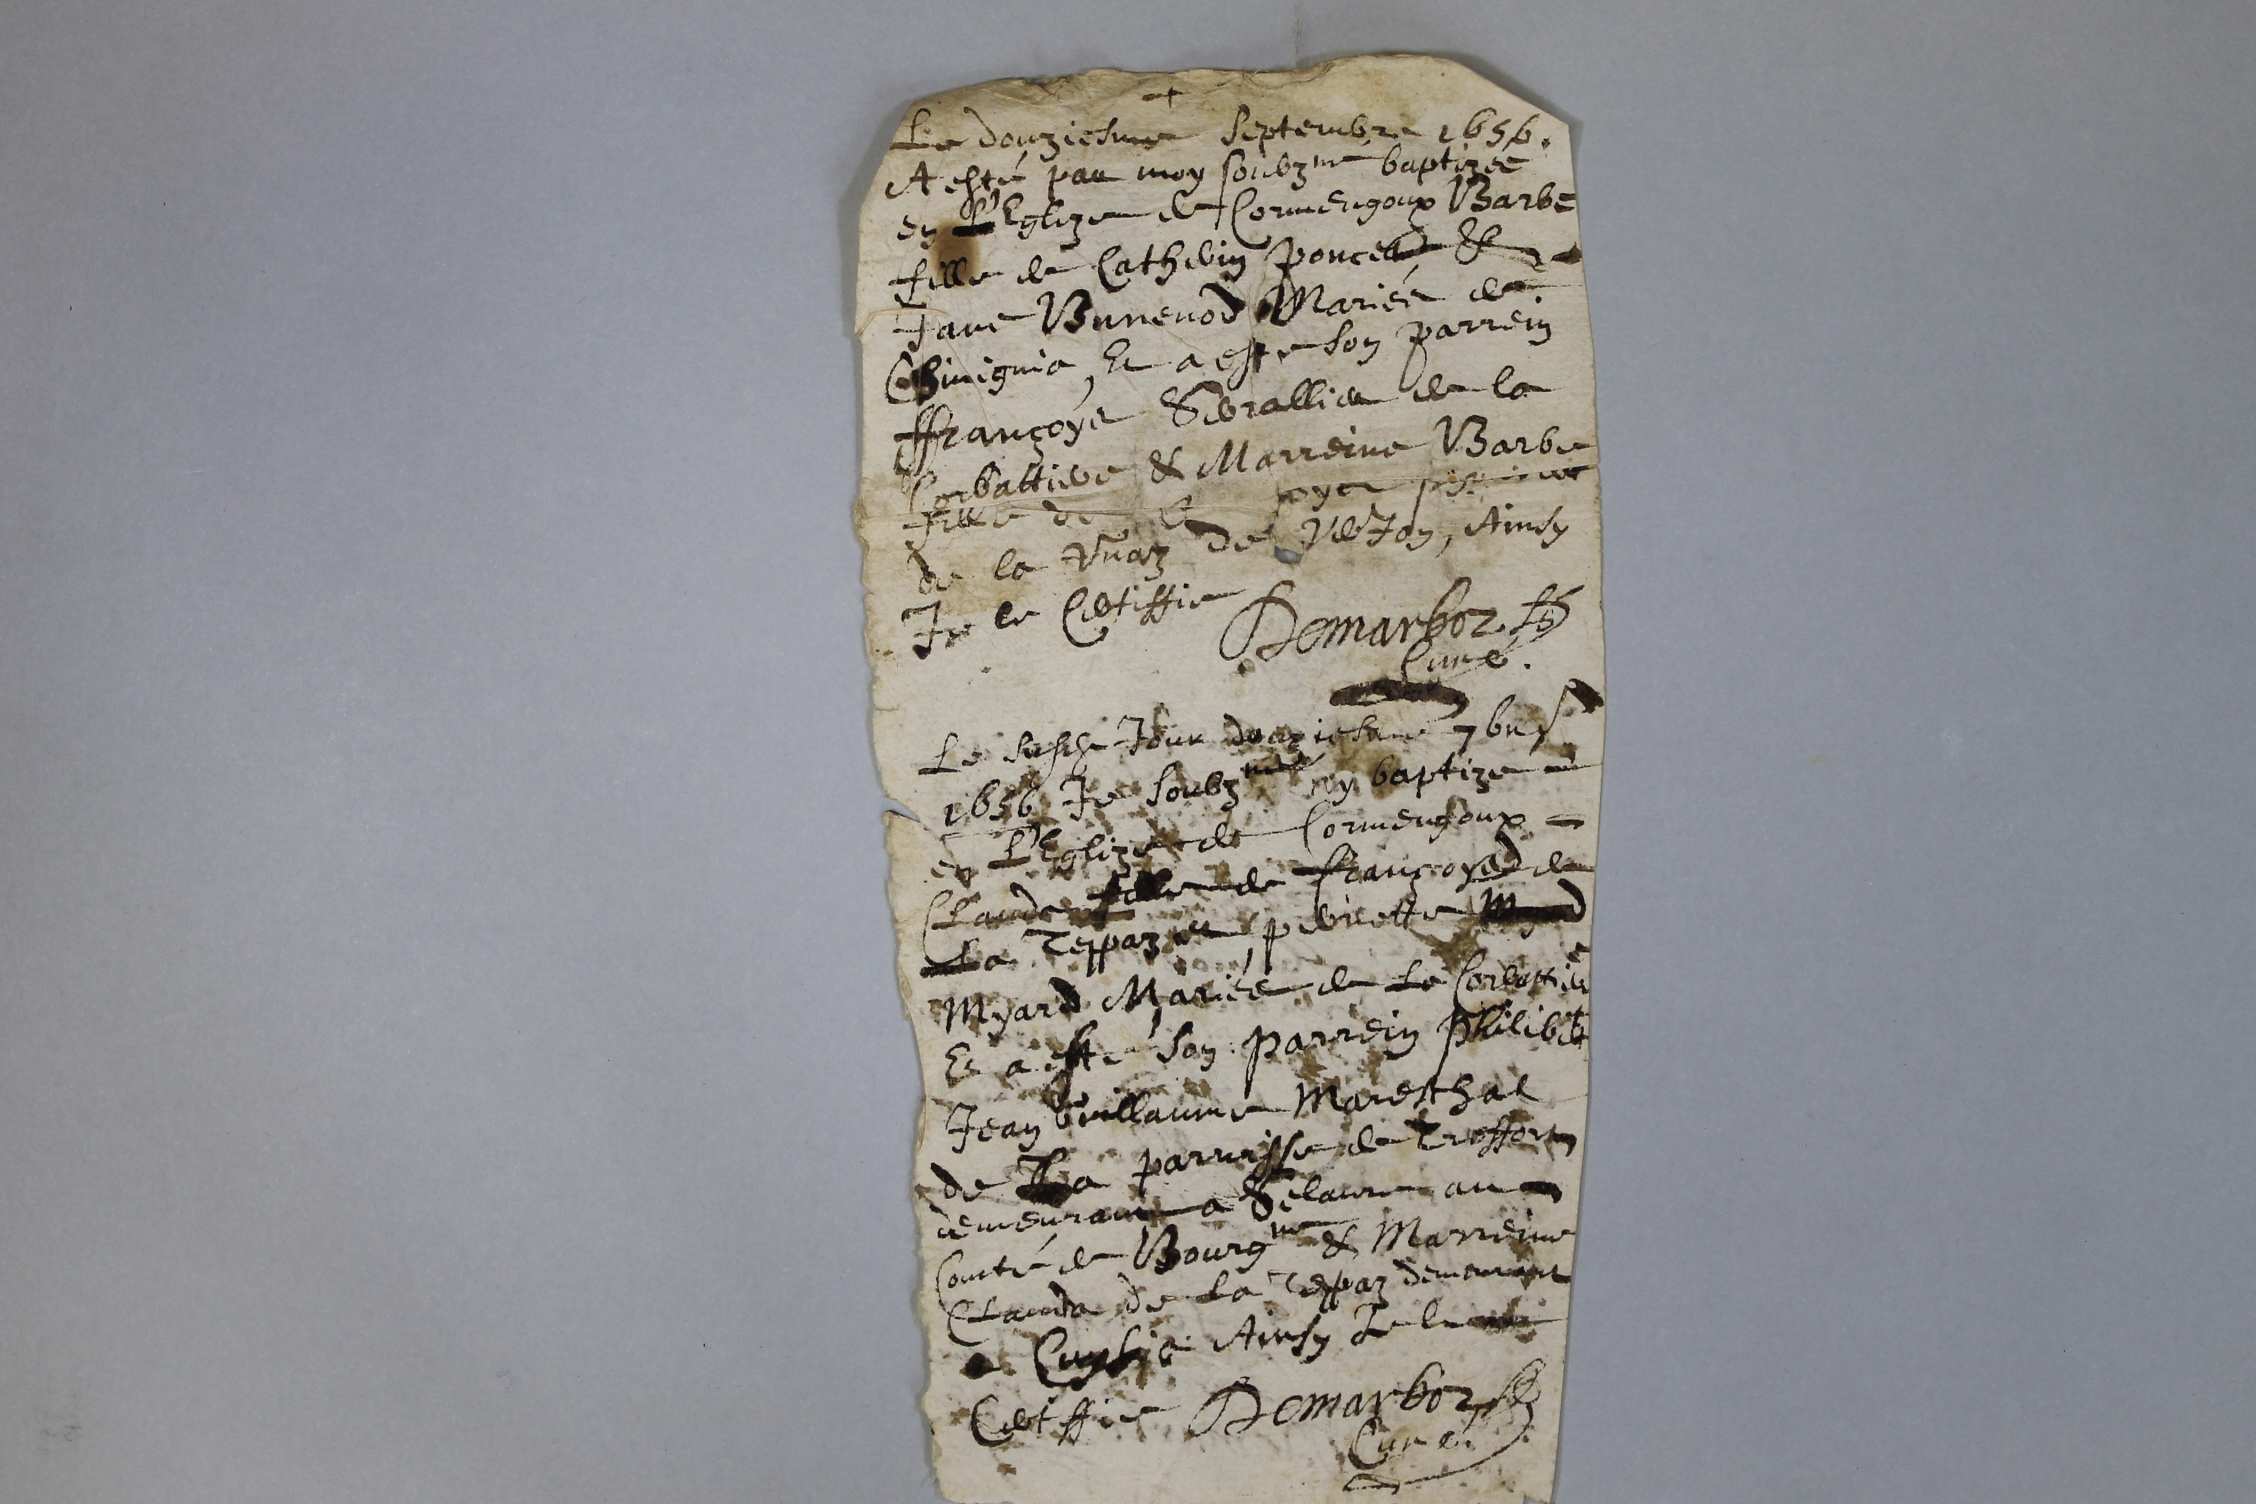 Le douziesme Septembre 1656.
A esté par moy soubz.né baptizee
en L'Eglize de Cormengoux Barbe
fille de Cathelin Poncet &
Jane Vunenod Mariés de
Chinignia, Et a esté son parrein
ffrançoys Sevallier de la
Corbattiere & Marreine Barbe
fille de
de la Vuaz de Verjon, Ainsy
Je le Certiffie Demarboz
Curé.
Le susdit Jour douziesme 7bre
1656 Je soubz.né ay baptize
en L'Eglize de Cormengoux
Claude fille de françoys de
La Teppaz et pierrette
Myard Mariés de La Corbattiere
Et a esté son parrein Philibert
Jean Guillaume Mareschal
de La parroisse de Treffort
demeurant a au
Comté de Bourg.ne & Marreine
Clauda de La Teppaz demeurant
a Ainsy Je le
Certiffie Demarboz
Curé.